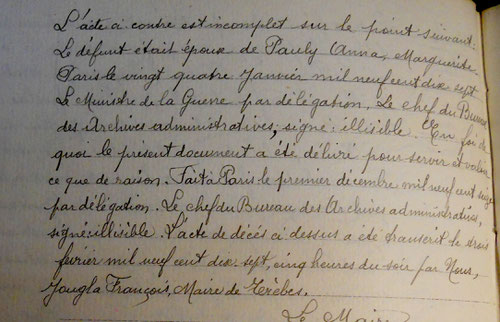 L'acte ci contre est incomplet sur le point suivant:
Le défunt était époux de Pauly (Anna, Marguerite.
Paris le vingt quatre Janvier mil neuf cent dix sept
Le Ministre de la Guerre par délégation, Le chef du Bureau
des Archives administratives, signé: illisible. En foi de
quoi le présent document a été délivré pour servir et valoir
ce que de raison. Fait à Paris le premier décembre mil neuf cent seize
par délégation. Le chef du Bureau des Archives administratives,
signé: illisible. L'acte de décès ci dessus a été transcrit le trois
février mil neuf cent dix-sept, cinq heures du soir par Nous,
Jougla François, Maire de Trèbes.
Le Maire